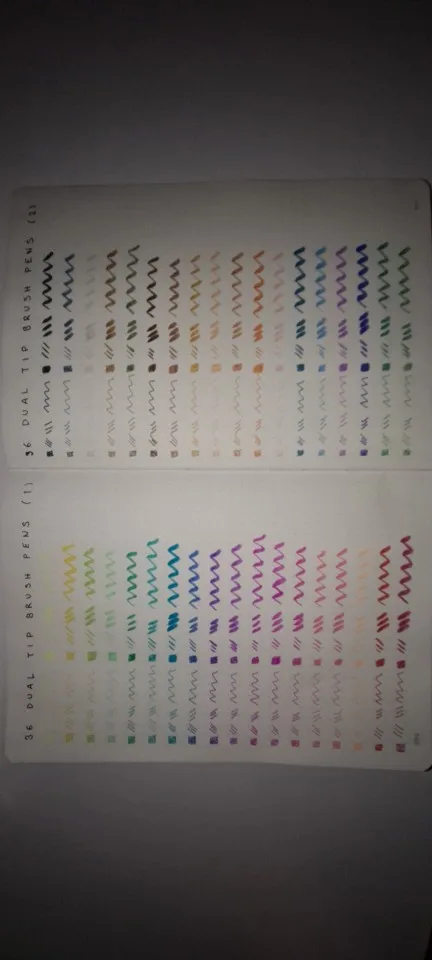 36 DUAL TIP BRUSH PENS (1)
36 DUAL TIP BRUSH PENS (2)